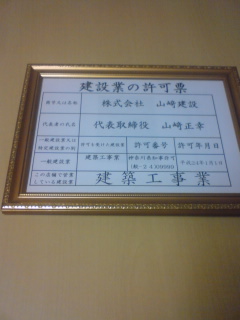 建設業の許可票
商号又は名称 株式会社 山崎建設
代表者の氏名 代表取締役 山崎正幸
一般建設業又は特定建設業の別 許可を受けた建設業 許可番号 許可年月日
一般建設業 建築工事業 神奈川県知事許可
この店舗で営業している建設業 建築工事業